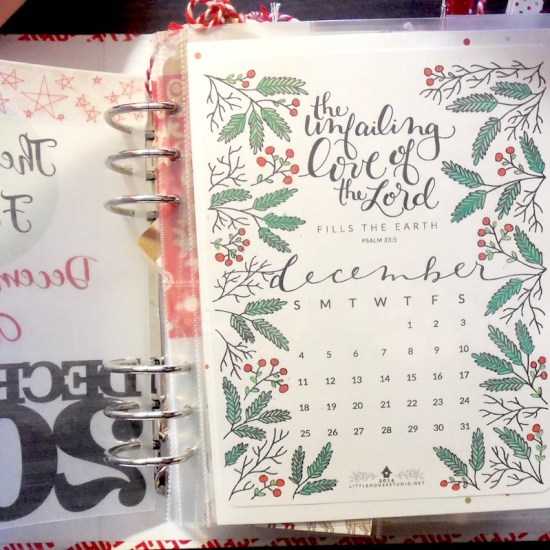 The
F
Decem
DECE
20
the
unfailing
love of
the Lord
FILLS THE EARTH
PSALM 33:5
december
S M T W T F S
1 2 3
4 5 6 7 8 9 10
11 12 13 14 15 16 17
18 19 20 21 22 23 24
25 26 27 28 29 30 31
2016
LITTLEHOUSESTUDIO.NET